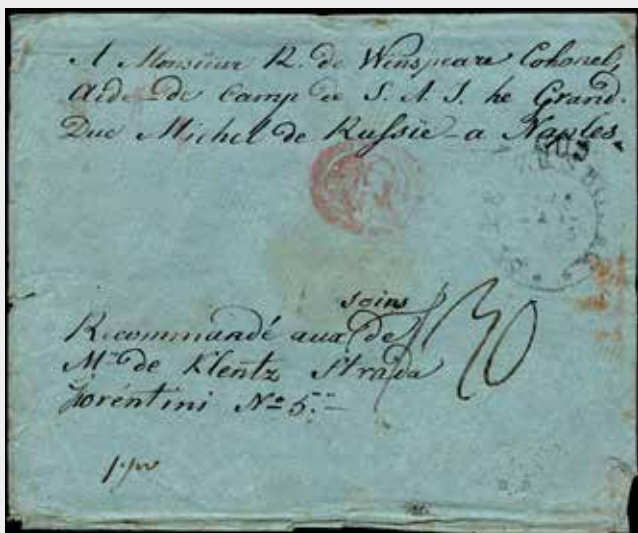 A Monsieur R. de Winspeare Colonel,
Aide-de Camp de S. A. I. le Grand-
Duc Michel de Russie - a Naples.
soins
Recommandé aux de
Mr. de Klentz Strada
Fiorentini No 5.-
30